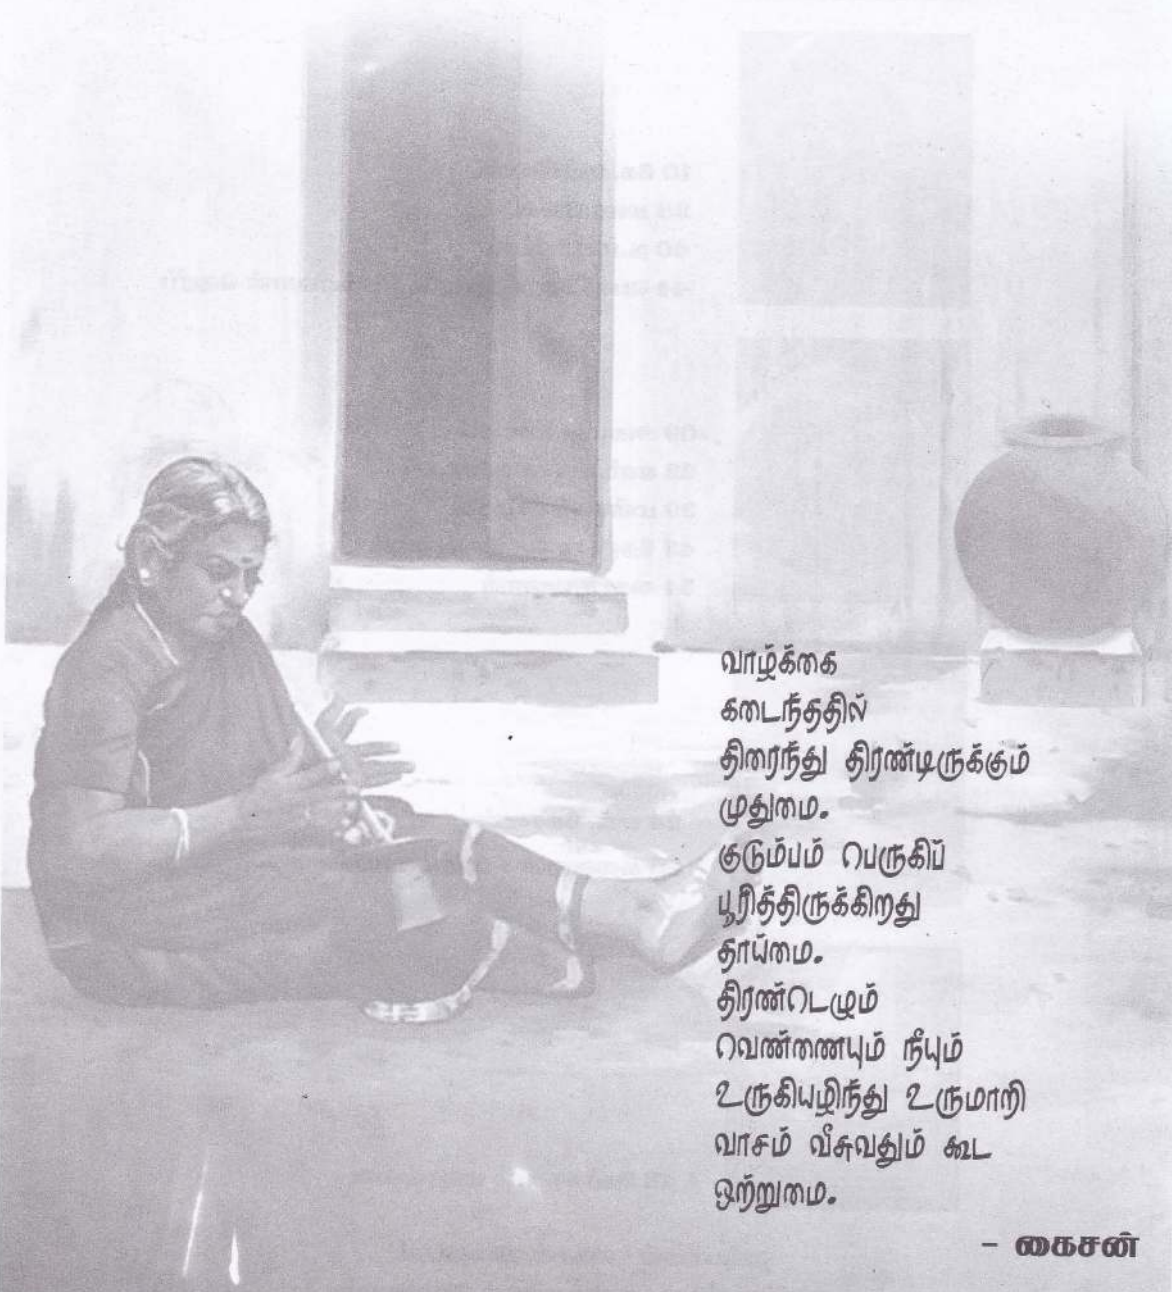 வாழ்க்கை
கடைந்ததில்
திரைந்து திரண்டிருக்கும்
முதுமை.
குடும்பம் பெருகிப்
பூரித்திருக்கிறது
தாய்மை.
திரண்டெழும்
வெண்ணையும் நீயும்
உருகியழிந்து உருமாறி
வாசம் வீசுவதும் கூட
ஒற்றுமை.
- கைசன்